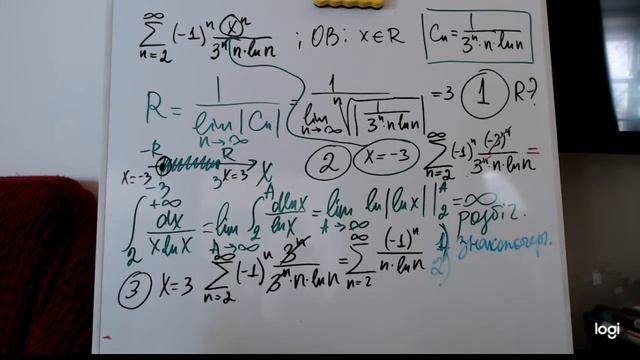 ∑_{n=2}^{∞} (-1)^n x^n / (3^n n·ln n) ; ОВ: x∈R
C_n = 1 / (3^n·n·ln n)
R = 1 / lim_{n→∞} |C_n| = 1 / lim_{n→∞} ⁿ√|1 / (3^n·n ln n)| = 3 ① R?
-R R
x=-3 x=3 X
-3 3
② x=-3 ∑_{n=2}^{∞} (-1)^n (-3)^n / (3^n·n·ln n) =
∫_2^{+∞} dx / (x ln x) = lim_{A→∞} ∫_2^A d ln x / ln x = lim_{A→∞} ln|ln x| |_2^A = ∞
розбіг.
③ x=3 ∑_{n=2}^{∞} (-1)^n 3^n / (3^n·n·ln n) = ∑_{n=2}^{∞} (-1)^n / (n·ln n)
1) знакопочерг.
2)
logi